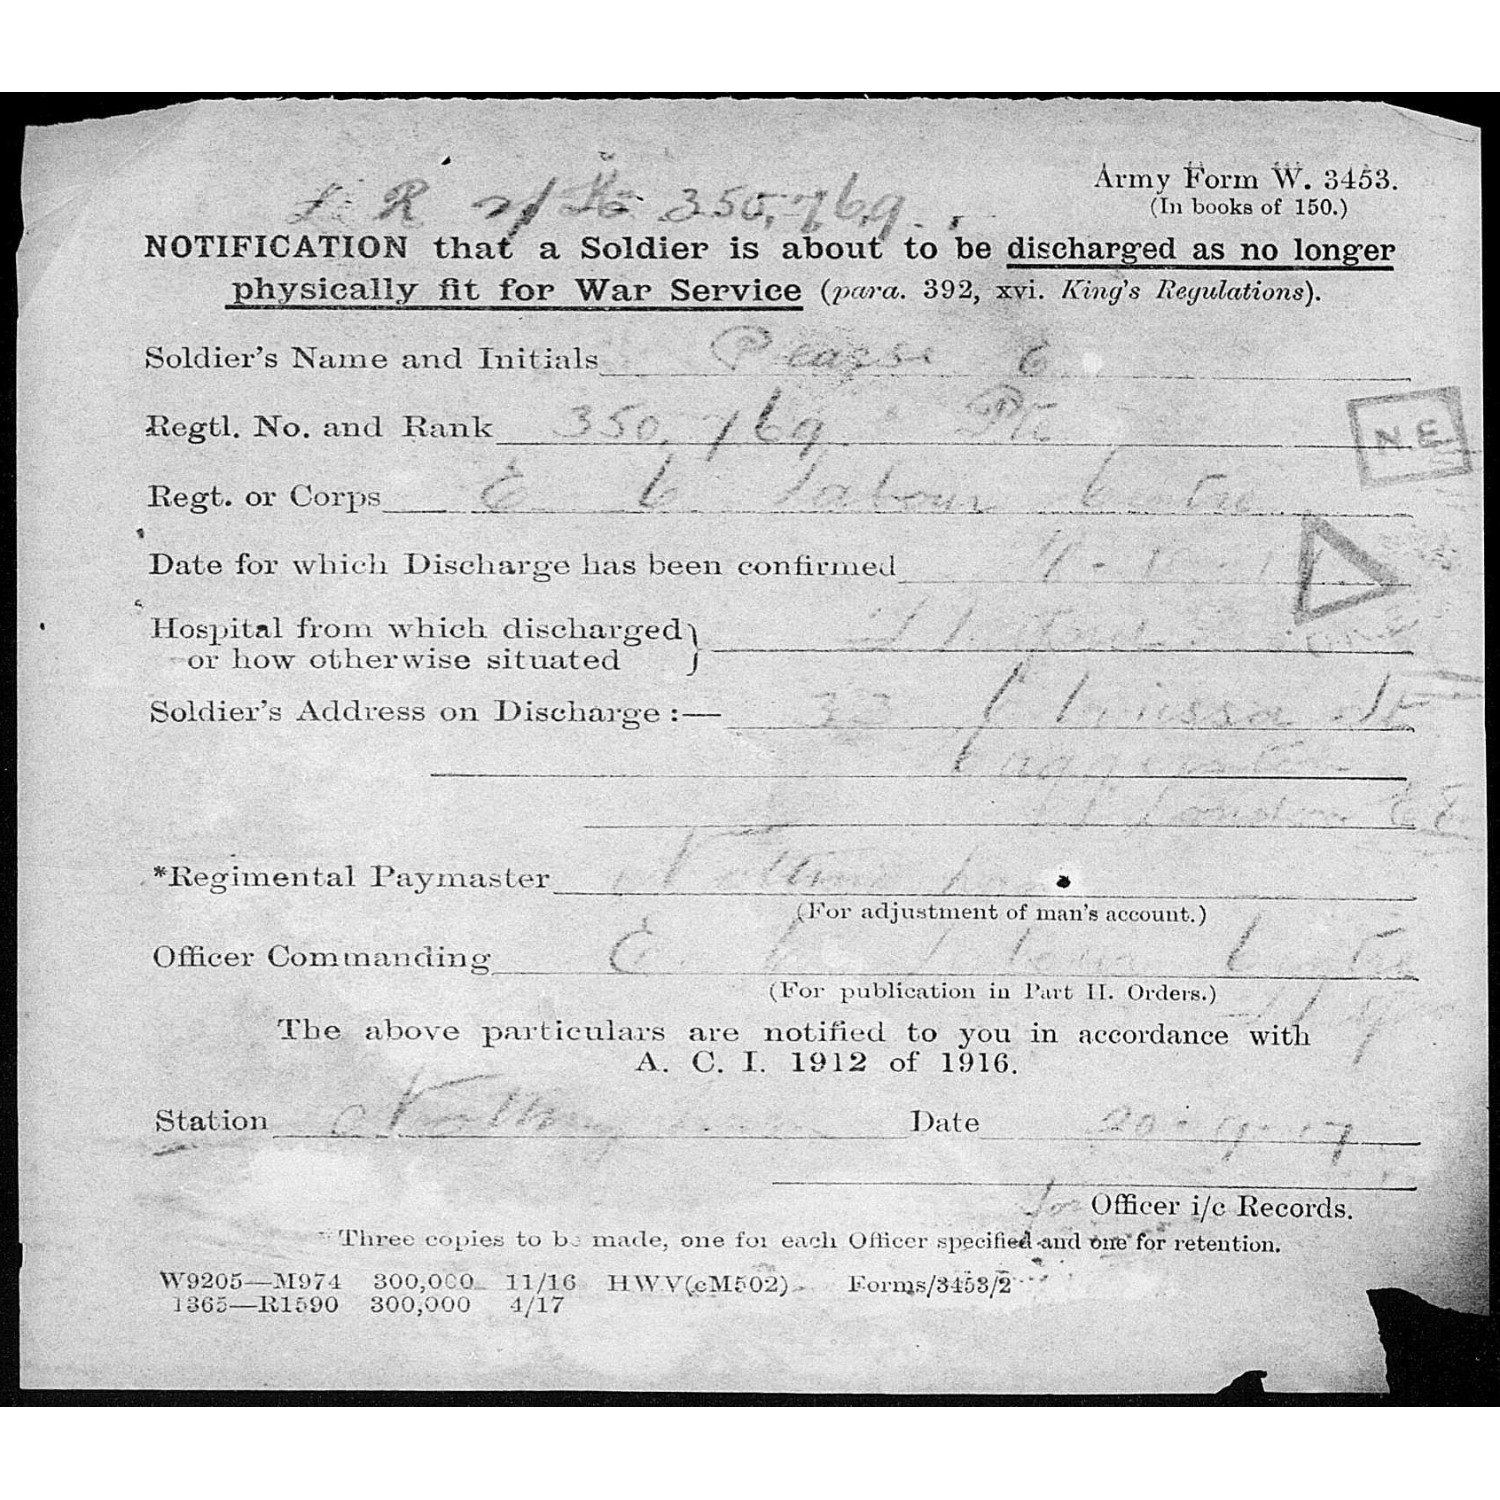 350,769
Army Form W. 3453.
(In books of 150.)
NOTIFICATION that a Soldier is about to be discharged as no longer
physically fit for War Service (para. 392, xvi. King's Regulations).
Soldier's Name and Initials
Regtl. No. and Rank 350,769 Pte
N.E.
Regt. or Corps E C Labour Centre
Date for which Discharge has been confirmed
Hospital from which discharged
or how otherwise situated
Soldier's Address on Discharge :— 33 Clarissa St
Haggerston
London
*Regimental Paymaster Nottingham
(For adjustment of man's account.)
Officer Commanding E C Labour Centre
(For publication in Part II. Orders.)
The above particulars are notified to you in accordance with
A. C. I. 1912 of 1916.
Station Nottingham Date 20-9-17
for Officer i/c Records.
* Three copies to be made, one for each Officer specified and one for retention.
W9205—M974 300,000 11/16 HWV(cM502) Forms/3453/2
1365—R1590 300,000 4/17